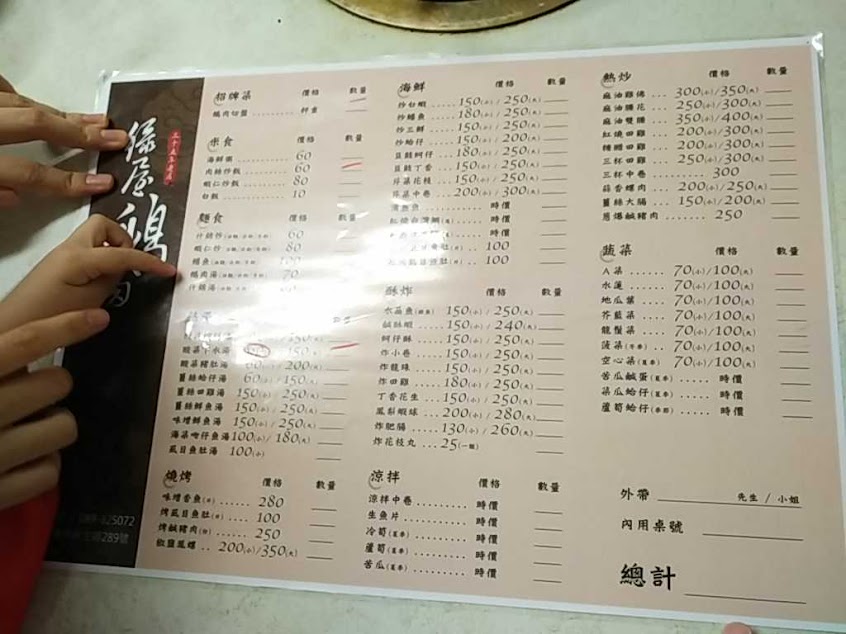 三十五年老店
鵝
089-325072
289號
招牌菜 價格 數量
鵝肉切盤 ......... 秤重
米食 價格 數量
海鮮粥 ............ 60
肉絲炒飯 ......... 60
蝦仁炒飯 ......... 80
白飯 ............... 10
麵食 價格 數量
什錦炒 60
蝦仁炒 80
鱔魚 100
鵝肉湯 70
什錦湯
酸菜下水湯 150(大)
酸菜豬肚湯 60(小)/200(大)
薑絲蛤仔湯 60(小)/150(大)
薑絲四雞湯 150(小)/250(大)
薑絲鮮魚湯 150(小)/250(大)
味噌鮮魚湯 150(小)/250(大)
海菜吻仔魚湯 100(小)/180(大)
虱目魚肚湯 100(小)
燒烤 價格 數量
味噌香魚(1P) ...... 280
烤虱目魚肚(1P) ... 100
烤鹹豬肉(1P) ...... 250
椒鹽鳳螺 .. 200(小)/350(大)
海鮮 價格 數量
炒白蝦 ... 150(小)/250(大)
炒鱔魚 ... 180(小)/250(大)
炒三鮮 ... 150(小)/250(大)
炒蛤仔 ... 150(小)/200(大)
豆鼓蚵仔 .. 180(小)/250(大)
豆鼓丁香 .. 150(小)/250(大)
芹菜花枝 .. 150(小)/250(大)
芹菜中卷 .. 200(小)/300(大)
時價
時價
時價
100
100
酥炸 價格 數量
水晶魚 150(小)/250(大)
鹹酥蝦 ... 150(小)/240(大)
蚵仔酥 ... 150(小)/250(大)
炸小卷 ... 150(小)/250(大)
炸龍珠 ... 150(小)/250(大)
炸四雞 ... 180(小)/250(大)
丁香花生 .. 150(小)/250(大)
鳳梨蝦球 .. 200(小)/280(大)
炸肥腸 ... 130(小)/260(大)
炸花枝丸 .. 25(一顆)
涼拌 價格 數量
涼拌中卷 ......... 時價
生魚片 ............ 時價
冷筍(夏季) ......... 時價
蘆筍(夏季) ......... 時價
苦瓜(夏季) ......... 時價
熱炒 價格 數量
麻油雞佛 .. 300(小)/350(大)
麻油腰花 .. 250(小)/300(大)
麻油雙腰 .. 350(小)/400(大)
紅燒四雞 .. 200(小)/300(大)
糖醋四雞 .. 200(小)/300(大)
三杯四雞 .. 250(小)/300(大)
三杯中卷 ...... 300
蒜香螺肉 ... 200(小)/250(大)
薑絲大腸 ... 150(小)/200(大)
蔥爆鹹豬肉 ...... 250
蔬菜 價格 數量
A菜 ...... 70(小)/100(大)
水蓮 ...... 70(小)/100(大)
地瓜葉 ... 70(小)/100(大)
芥藍菜 ... 70(小)/100(大)
龍鬚菜 ... 70(小)/100(大)
菠菜(冬季) .. 70(小)/100(大)
空心菜(夏季) 70(小)/100(大)
苦瓜鹹蛋(夏季) ..... 時價
菜瓜蛤仔(夏季) ..... 時價
蘆筍蛤仔(季節) ..... 時價
外帶 先生 / 小姐
內用桌號
總計